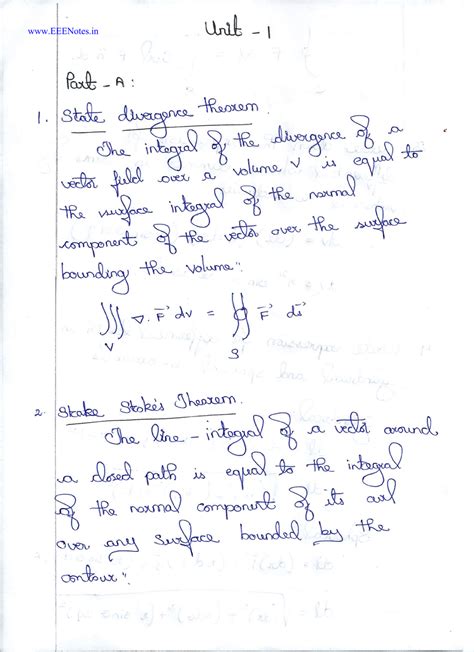 www.EEENotes.in
Unit - 1
Part - A:
1. State divergence theorem.
The integral of the divergence of a
vector field over a volume V is equal to
the surface integral of the normal
component of the vector over the surface
bounding the volume".
∭ ∇. F⃗ dv = ∯ F⃗ ds⃗
V S
2. State Stoke's Theorem.
The line - integral of a vector around
a closed path is equal to the integral
of the normal component of its curl
over any surface bounded by the
contour".